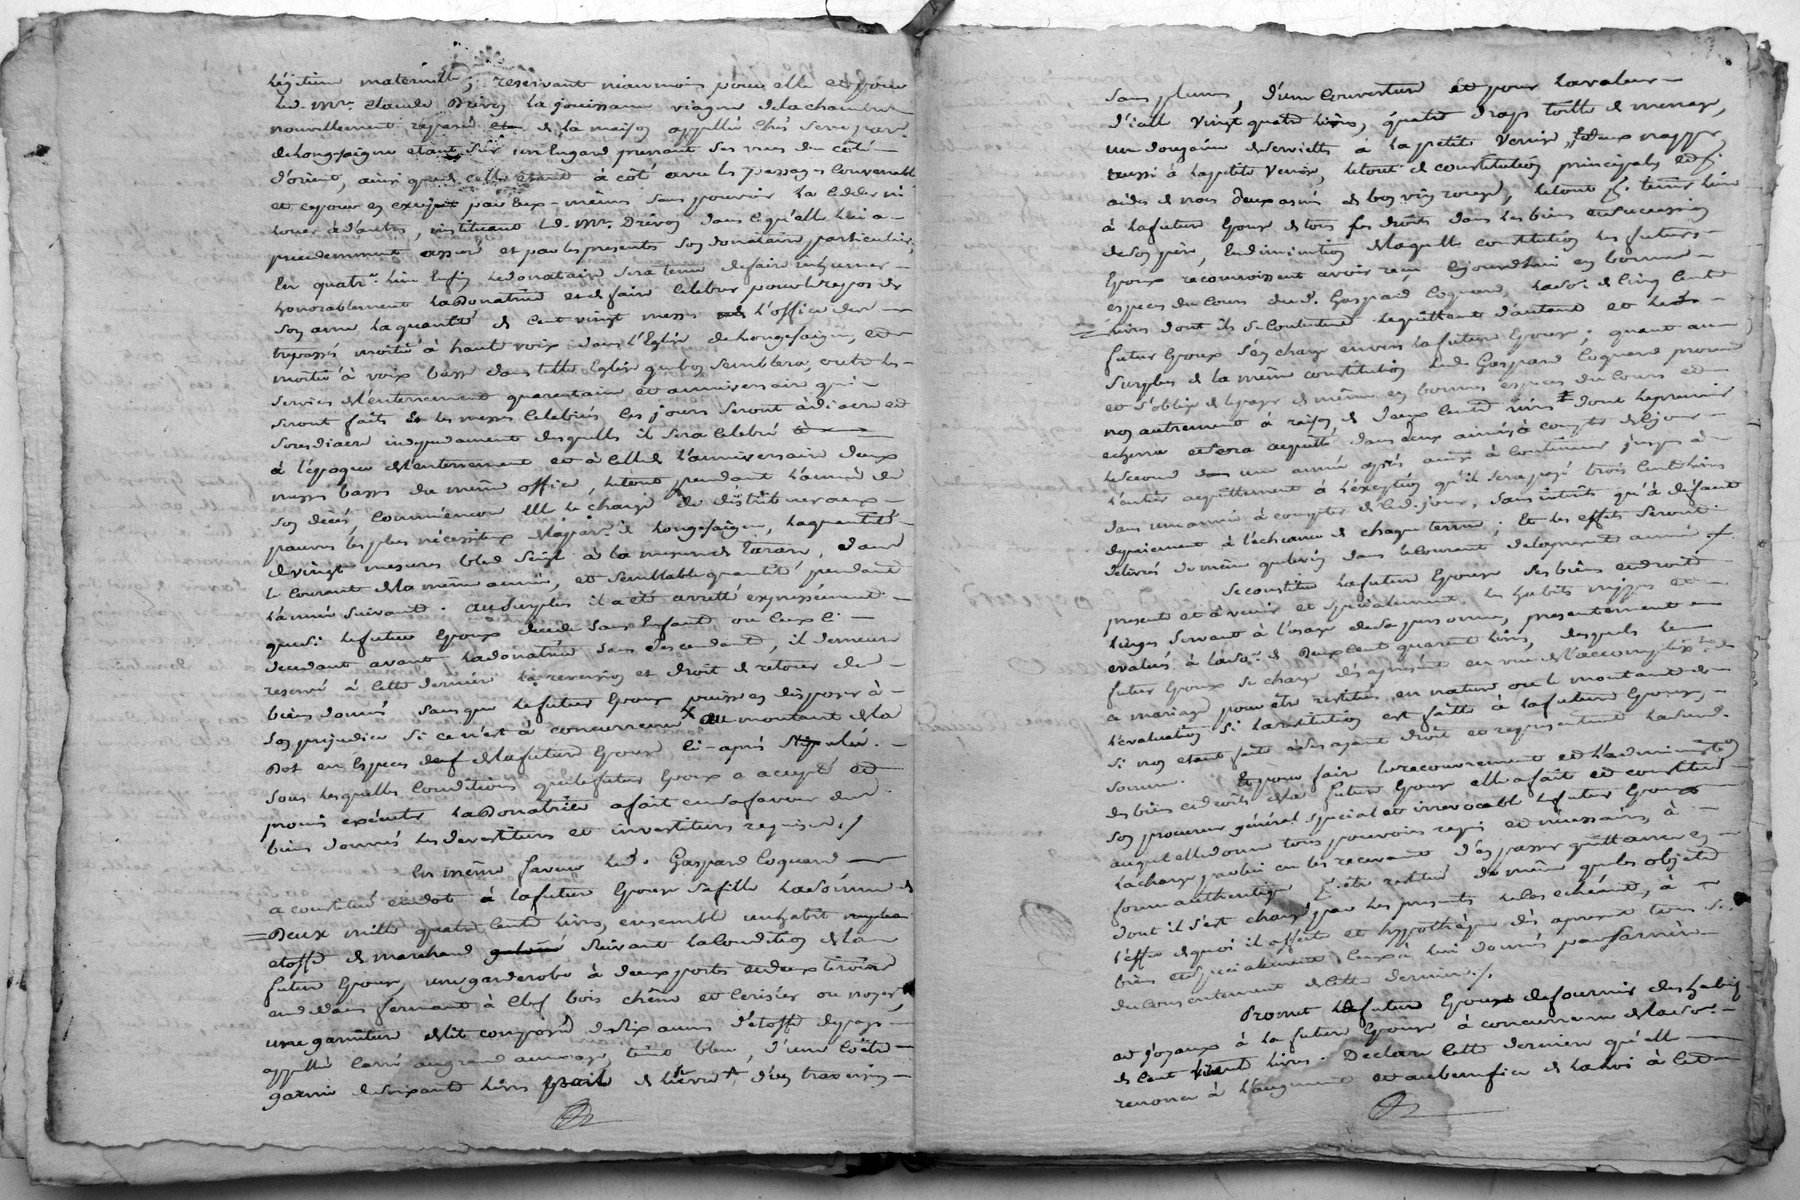 légitime maternelle; reservant néanmoins pour elle et pour
led. Mre. Claude Drévon la jouissance viagère de la chambre
nouvellement reparée de la maison appellée chés Serre par.
de Longesaigne étant sur un hugard prennant ses vues du côté
d'orient, ainsi que celle étant à côté avec les passages convenables
et ce pour en par eux-mêmes sans pouvoir la ceder ni
louer à d'autres, instituant led. Mre. Drévon dans ce qu'elle lui a
precedemment assuré et par les presentes son donataire particulier;
En quatre. lieu Enfin le donataire sera tenu de faire inhumer
honorablement la Donatrice et de faire celebrer pour le repos de
son ame la quantité de cent vingt messes de l'office des
trepassés moitié à haute voix dans l'Eglise de Longesaigne, et
moitié à voix basse dans telle Eglise que bon semblera, outre les
services d'enterrement quarantaine et anniversaire qui
seront faits et les messes celebrées les jours seront à diacre et
sousdiacre independament desquelles il sera celebré
à l'époque de l'enterrement et à celle de l'anniversaire deux
messes basses du même office, le tout pendant l'année de
son décès, comme encore elle le charge de distribuer aux
pauvres les plus nécessiteux de la par. de Longesaigne, la quantité
de vingt mesures bled seigle à la mesure de Tarare, dans
le courant de la même année, et semblable quantité pendant
l'année suivante. Au surplus il a été arretté expressément
que si le futur Epoux decede sans Enfants ou ceux-ci
decedant avant la donatrice sans descendants, il demeure
reservé à cette derniere la reversion et droit de retour des
biens donnés sans que le futur Epoux puisse en disposer à
son prejudice si ce n'est à concurrence du montant de la
Dot en Espèces de la future Epouse ci-après stipulée.
sous lesquelles conditions que le futur Epoux a accepté et
promis executer la Donatrice a fait en sa faveur des
biens donnés les devestitures et investitures requises./
En même faveur led. Gaspard Coquard
a constitué en dot à la future Epouse sa fille la somme de
Deux mille quatre cents livres, ensemble un habit nuptial
etoffe de marchand suivant la condition de la
future Epouse, une garderobe à deux portes et deux tiroirs
au dedans fermant à clef bois chêne et cerisier ou noyer,
une garniture de lit composée de six aunes d'étoffe de pays
appellé carré au grand aunage teint bleu, d'une coêtre
garnie de soixante livres poil de lièvre, d'un traversin
sans plumes, d'une couverture et pour la valeur
d'icelle vingt quatre livres, quatre draps toille de menage,
une douzaine de serviettes à la petite Venise, deux nappes
aussi à la petite Venise, le tout de constitution principale et p.
aides de noces deux asnées de bon vin rouge, le tout p. tenir lieu
à la future Epouse de tous ses droits dans les biens et succession
de son père, En diminution de laquelle constitution les futurs
Epoux reconnoissent avoir reçu cejourd'hui en bonnes
especes du cours dud. Gaspard Coquard, la so. de cinq cents
livres dont ils se contentent le quittent d'autant et led.
futur Epoux s'en charge envers la future Epouse; quant au
surplus de la même constitution led. Gaspard Coquard promet
et s'oblige de payer de même en bonnes especes du cours et
non autrement à raison de deux cents livres dont le premier
echerra et sera acquitté dans deux années à compter de ce jour
le second dans une année après ainsi à continuer jusqu'à
l'entier acquittement à l'exception qu'il sera payé trois cents livres
dans une année à compter de ced. jour, sans intérêts qu'à défaut
de payement à l'echeance de chaque terme; Et les effets seront
délivrés de même que le vin dans le courant de la presente année./.
Se constitue la future Epouse ses biens et droits
presents et à venir et specialement les habits nippes et
linges servant à l'usage de sa personne, presentement
evalués à la so. de Deux cent quarante livres, desquels le
futur Epoux se charge dès apresent en vue de l'accomplisst. de
ce mariage pour être restitués en nature ou le montant de
l'évaluation si la restitution est faitte à la future Epouse,
si non etant faite à des ayant droit et representant lad.
somme. Et pour faire le recouvrement et l'administration
des biens et droits de la future Epouse elle a fait et constitué
son procureur général special et irrevocable le futur Epoux
auquel elle donne tous pouvoirs requis et nécessaires, à
la charge par lui en les recevant d'en passer quittance en
forme authentique p. être restitué de même que les objets
dont il s'est chargé par les presentes le cas echéant, à
l'effet de quoi il affecte et hypothèque dès apresent tous ses
biens et specialement ceux à lui donnés par
du consentement de cette derniere./.
Promet le futur Epoux de fournir des habits
et joyaux à la future Epouse à concurrence de la so.
de cent vingt livres. Declare cette derniere qu'elle
renonce à l'augment et au benefice de la loi à cet